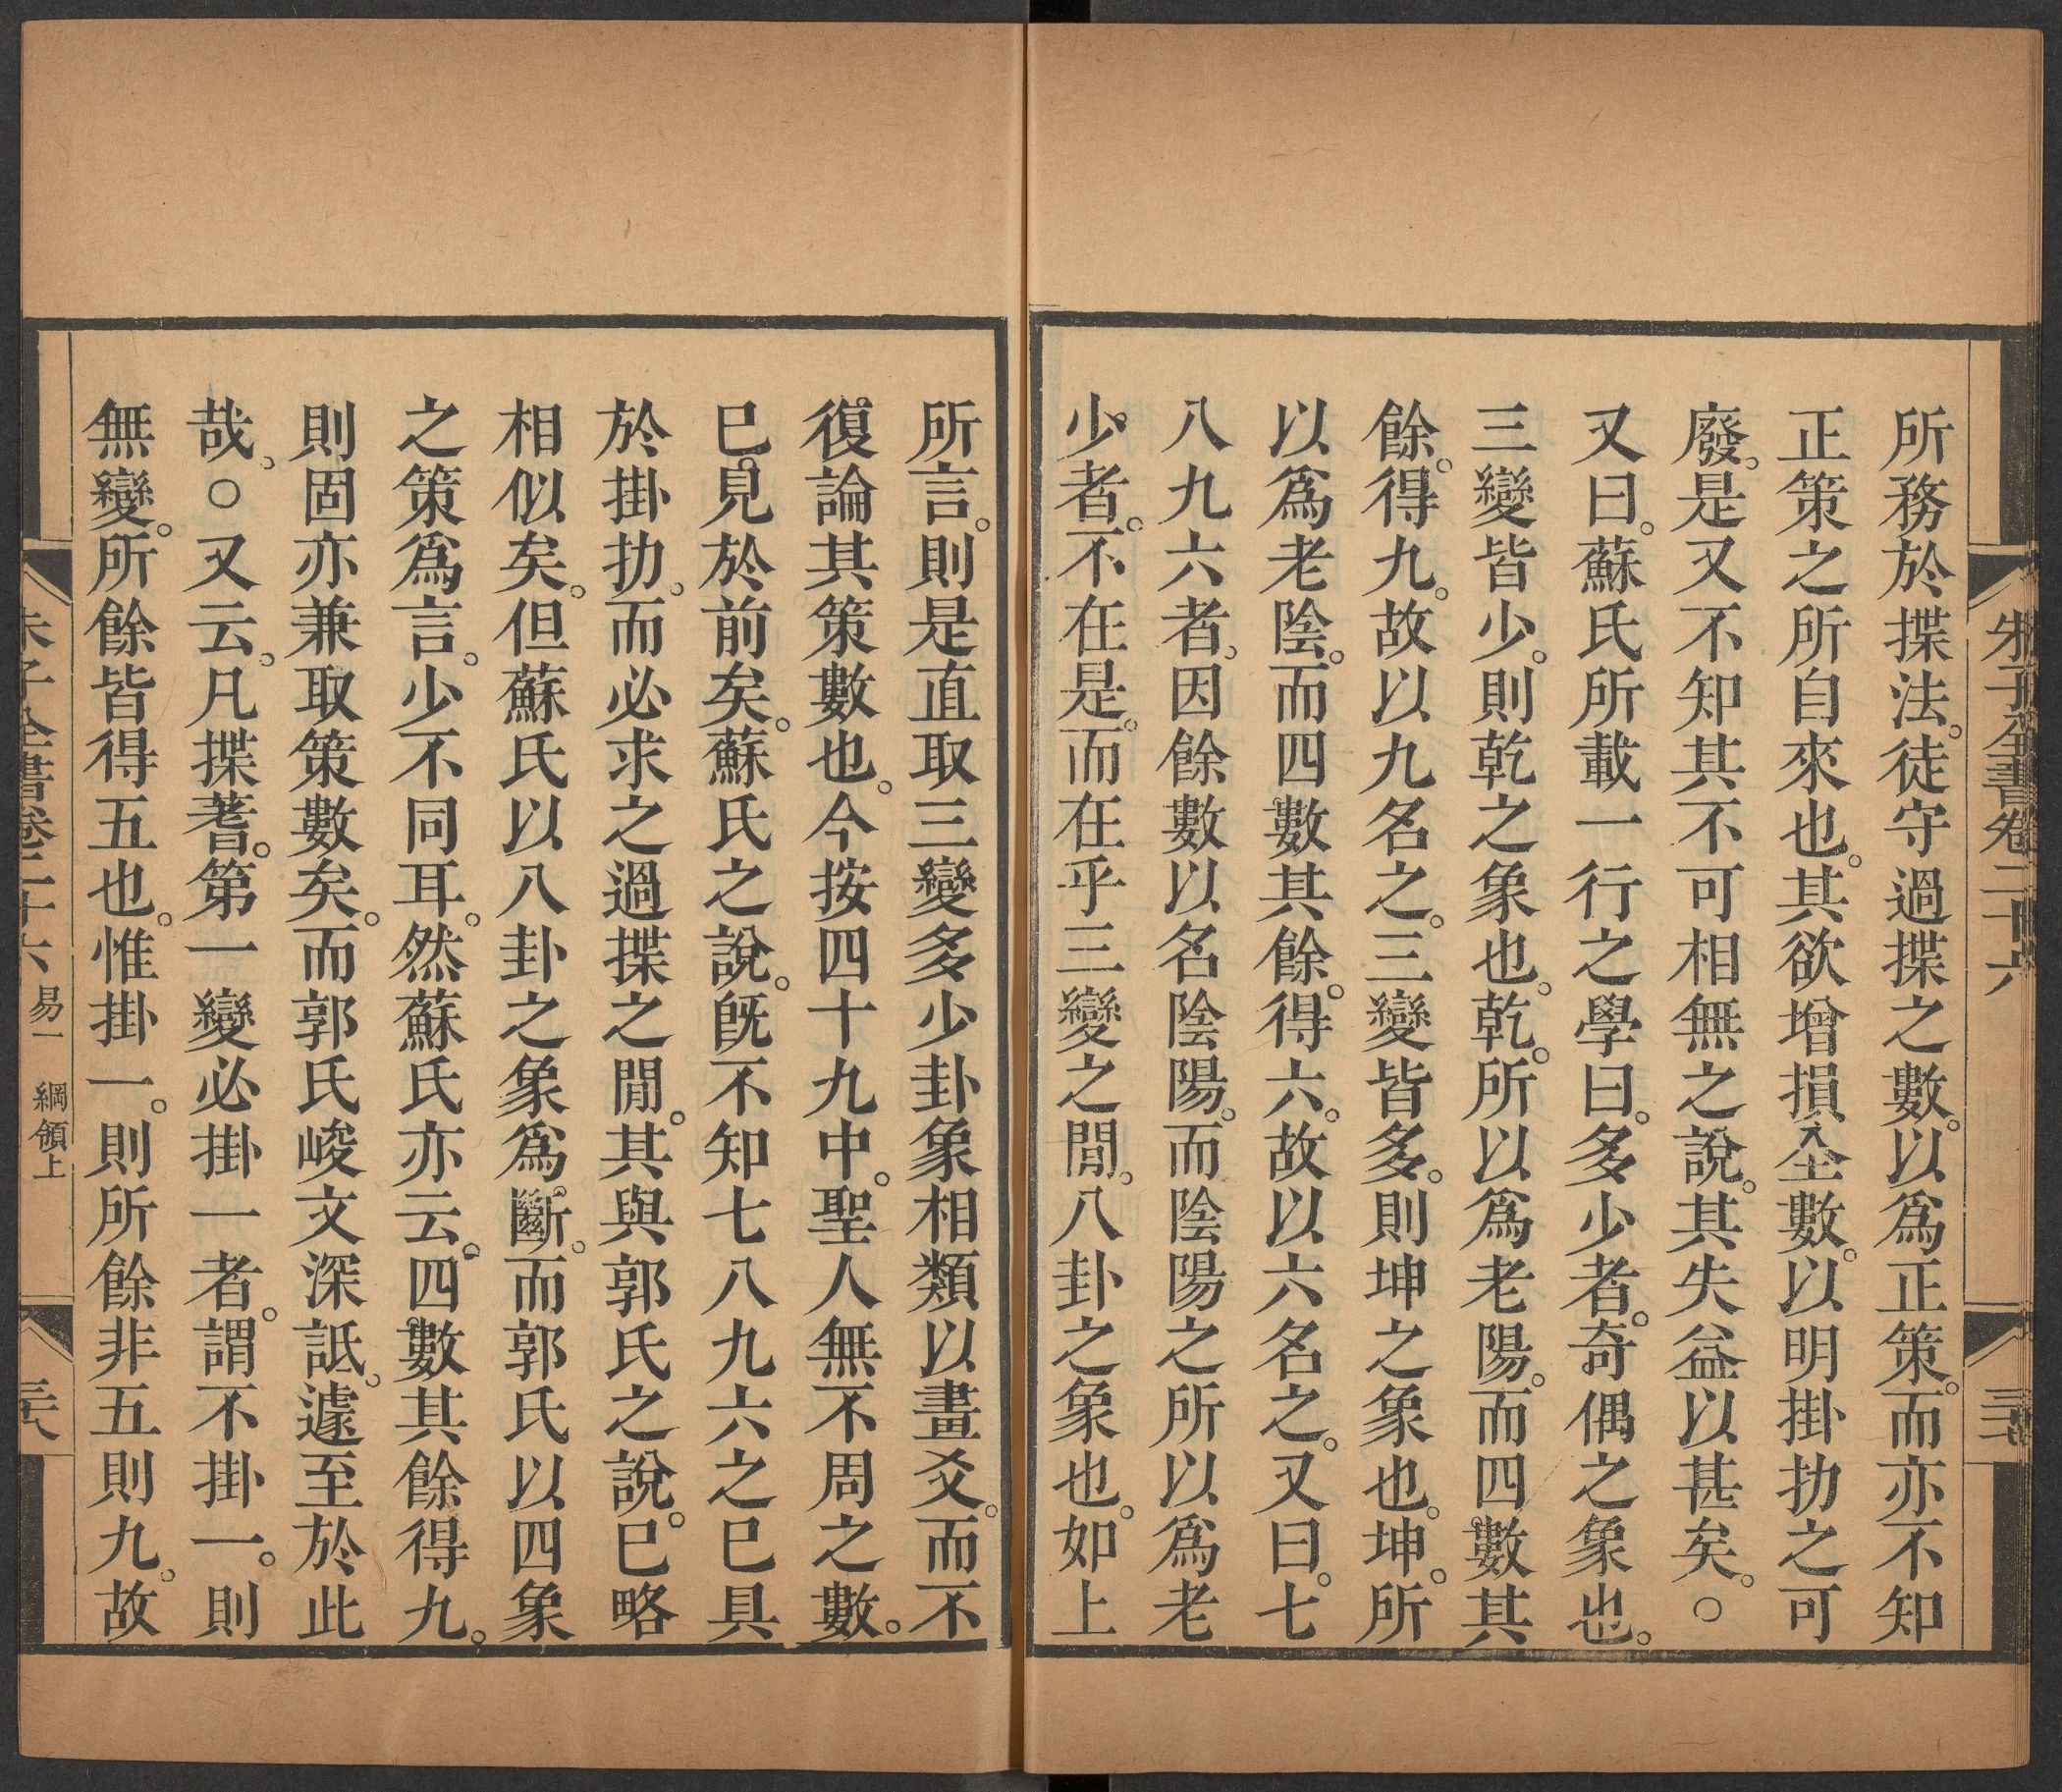 朱子全書卷二十六
所務於揲法。徒守過揲之數。以爲正策。而亦不知
正策之所自來也。其欲增損全數。以明掛扐之可
廢。是又不知其不可相無之說。其失益以甚矣。○
又曰。蘇氏所載一行之學曰。多少者。奇偶之象也。
三變皆少。則乾之象也。乾。所以爲老陽。而四數其
餘。得九。故以九名之。三變皆多。則坤之象也。坤。所
以爲老陰。而四數其餘。得六。故以六名之。又曰。七
八九六者。因餘數以名陰陽。而陰陽之所以爲老
少者。不在是。而在乎三變之閒。八卦之象也。如上
所言。則是直取三變多少卦象相類以畫爻。而不
復論其策數也。今按四十九中。聖人無不周之數。
巳見於前矣。蘇氏之說。旣不知七八九六之巳具
於掛扐。而必求之過揲之閒。其與郭氏之說。巳略
相似矣。但蘇氏以八卦之象爲斷。而郭氏以四象
之策爲言。少不同耳。然蘇氏亦云。四數其餘得九。
則固亦兼取策數矣。而郭氏峻文深詆。遽至於此
哉。○又云。凡揲蓍。第一變必掛一者。謂不掛一。則
無變。所餘皆得五也。惟掛一。則所餘非五則九。故
朱子全書卷二十六 易一 綱領上 三六